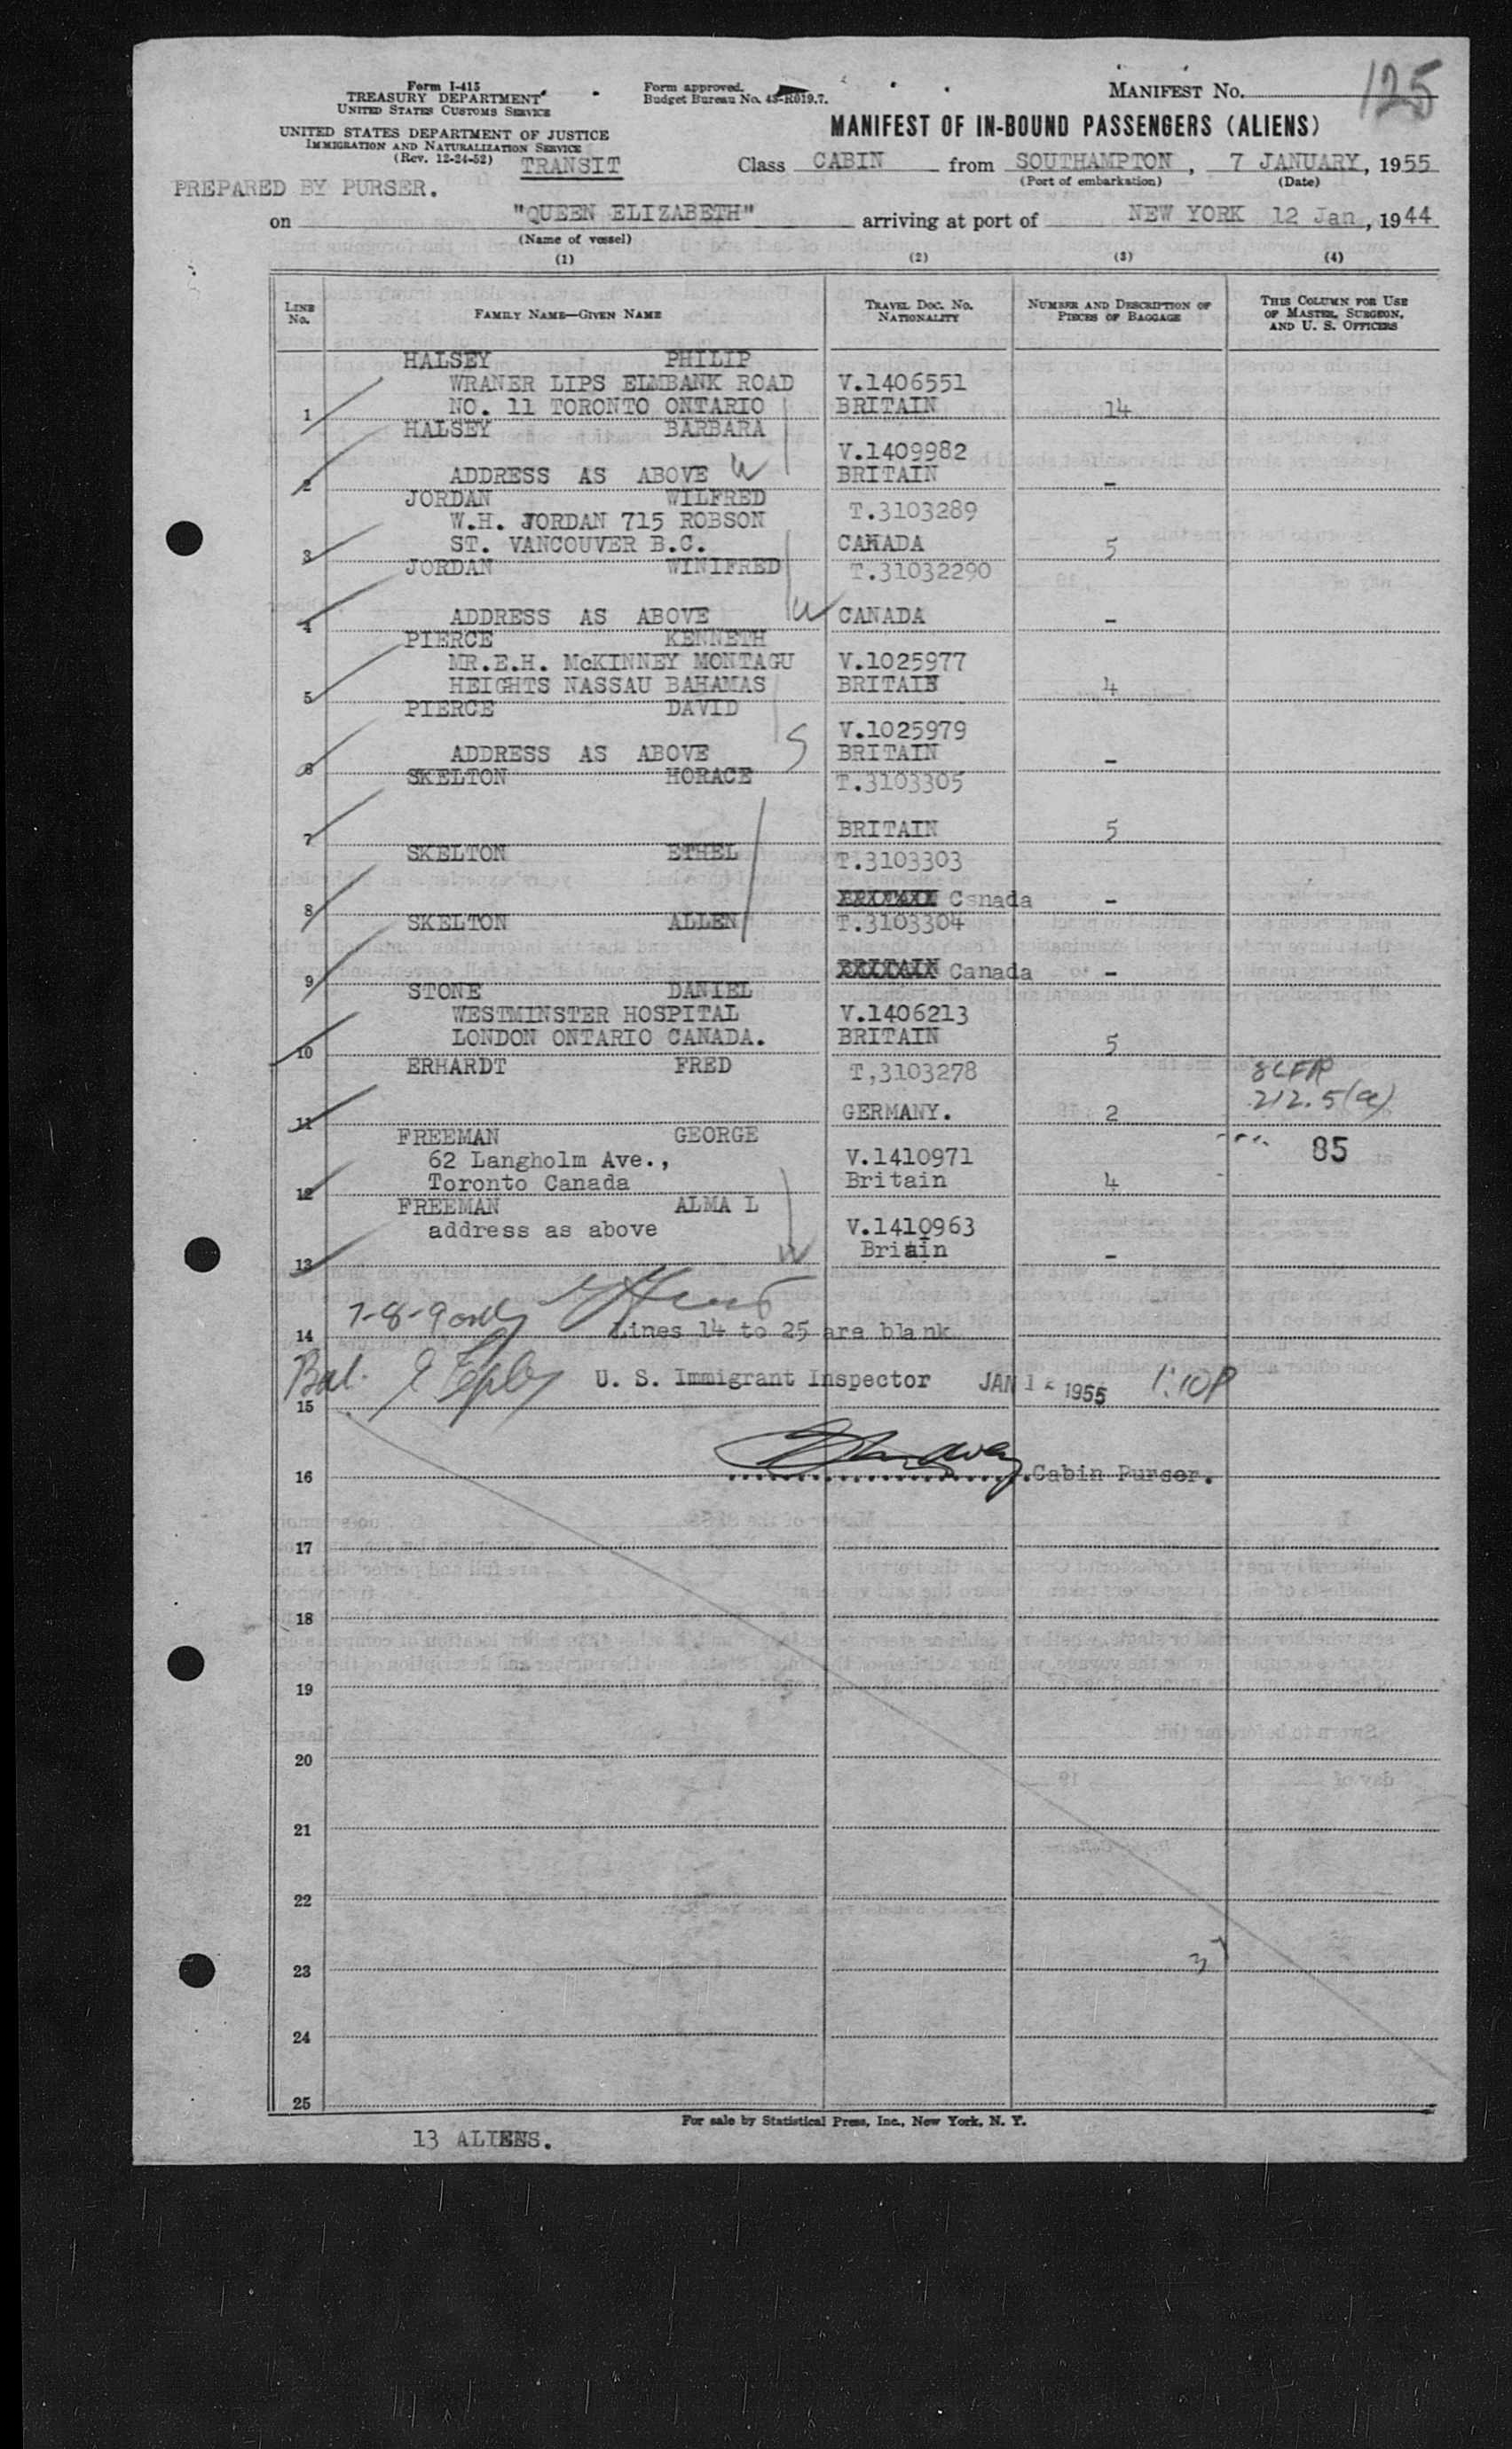 Form I-415
TREASURY DEPARTMENT
UNITED STATES CUSTOMS SERVICE
UNITED STATES DEPARTMENT OF JUSTICE
IMMIGRATION AND NATURALIZATION SERVICE
(Rev. 12-24-52)
TRANSIT
PREPARED BY PURSER.
Form approved.
Budget Bureau No. 43-R019.7.
MANIFEST NO. 125
MANIFEST OF IN-BOUND PASSENGERS (ALIENS)
Class CABIN from SOUTHAMPTON, 7 JANUARY, 1955
(Port of embarkation) (Date)
on "QUEEN ELIZABETH" arriving at port of NEW YORK 12 Jan, 1944
(Name of vessel)
(1) (2) (3) (4)
LINE No. FAMILY NAME—GIVEN NAME TRAVEL DOC. NO. NATIONALITY NUMBER AND DESCRIPTION OF PIECES OF BAGGAGE THIS COLUMN FOR USE OF MASTER, SURGEON, AND U. S. OFFICERS
HALSEY PHILIP
WRANER LIPS ELMBANK ROAD V.1406551
1 NO. 11 TORONTO ONTARIO BRITAIN 14
HALSEY BARBARA
V.1409982
2 ADDRESS AS ABOVE W BRITAIN -
JORDAN WILFRED
W.H. JORDAN 715 ROBSON T.3103289
3 ST. VANCOUVER B.C. CANADA 5
JORDAN WINIFRED T.31032290
4 ADDRESS AS ABOVE W CANADA -
PIERCE KENNETH
MR.E.H. McKINNEY MONTAGU V.1025977
5 HEIGHTS NASSAU BAHAMAS BRITAIN 4
PIERCE DAVID
V.1025979
6 ADDRESS AS ABOVE S BRITAIN -
SKELTON HORACE T.3103305
7 BRITAIN 5
SKELTON ETHEL T.3103303
8 BRITAIN Canada -
SKELTON ALLEN T.3103304
9 BRITAIN Canada -
STONE DANIEL
WESTMINSTER HOSPITAL V.1406213
10 LONDON ONTARIO CANADA. BRITAIN 5
ERHARDT FRED T,3103278 8CFR
11 GERMANY. 2 212.5(a)
FREEMAN GEORGE 85
62 Langholm Ave., V.1410971
12 Toronto Canada Britain 4
FREEMAN ALMA L
address as above V.1410963
13 W Briain -
7-8-9 only
14 Lines 14 to 25 are blank
Bal.
15 U. S. Immigrant Inspector JAN 12 1955 1:10P
16 Cabin Purser.
17
18
19
20
21
22
23 37
24
25
For sale by Statistical Press, Inc., New York, N. Y.
13 ALIENS.